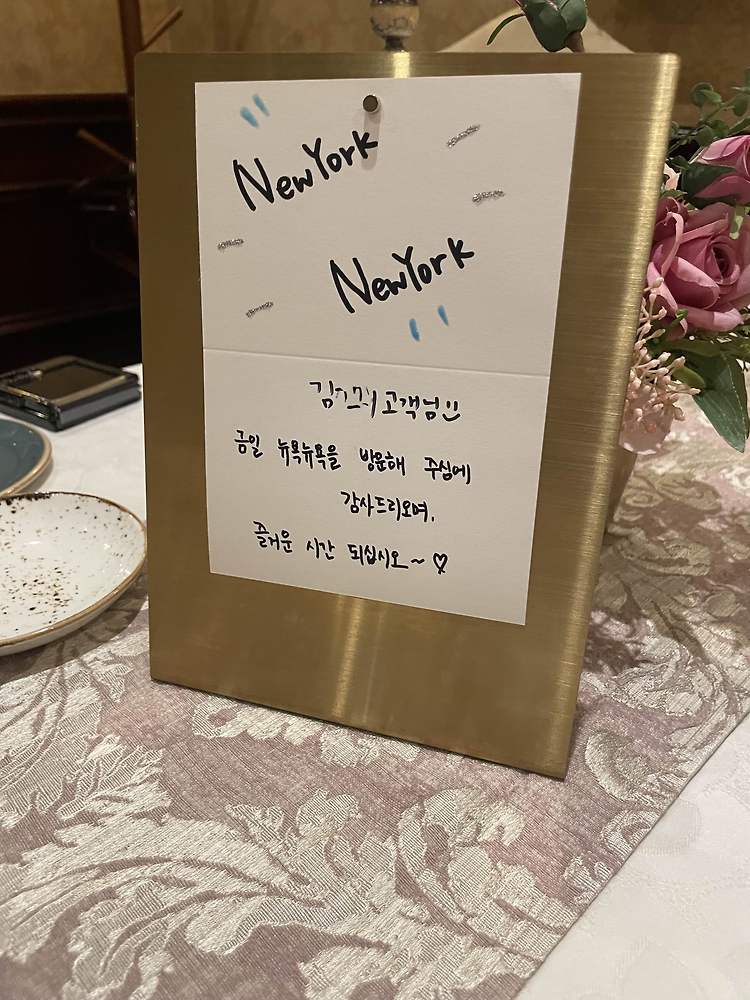 "NewYork
NewYork"
고객님
금일 뉴욕뉴욕을 방문해 주심에
감사드리오며,
즐거운 시간 되십시오~♡